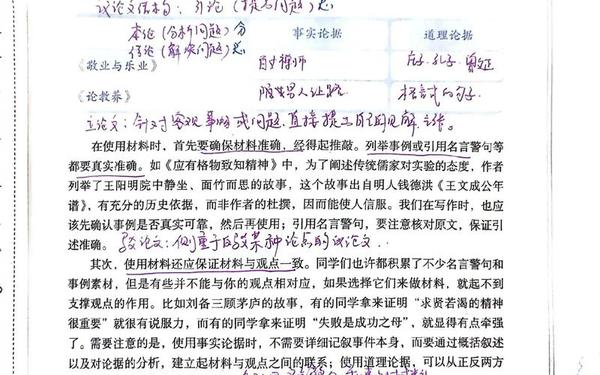 议论文结构：引论（提出问题）总
本论（分析问题）分
结论（解决问题）总
事实论据 道理论据
《敬业与乐业》 百丈禅师 庄子、孔子、曾文正
《论教养》 陌生男人让路 格言式的句子
立论文：针对客观事物或问题，直接提出自己的见解、主张。
在使用材料时，首先要确保材料准确，经得起推敲。列举事例或引用名言警句等
都要真实准确。如《应有格物致知精神》中，为了阐述传统儒家对实验的态度，作者
列举了王阳明院中静坐、面竹而思的故事，这个故事出自明人钱德洪《王文成公年
谱》，有充分的历史依据，而非作者的杜撰，因而能使人信服。我们在写作时，也应
该先确认事例是否真实可靠，然后再使用；引用名言警句，要注意核对原文，保证引
述准确。 驳论文：侧重于的议论文。
其次，使用材料还应保证材料与观点一致。同学们也许都积累了不少名言警句和
事例素材，但是有些并不能与你的观点相对应，如果选择它们来做材料，就起不到
支撑观点的作用。比如刘备三顾茅庐的故事，有的同学拿来证明“求贤若渴的精神
很重要”就很有说服力，而有的同学拿来证明“失败是成功之母”，就显得有点牵强
了。需要注意的是，使用事实论据时，不需要详细记叙事件本身，而要通过概括叙述
以及对论据的分析，建立起材料与观点之间的联系；使用道理论据，可以从正反两方